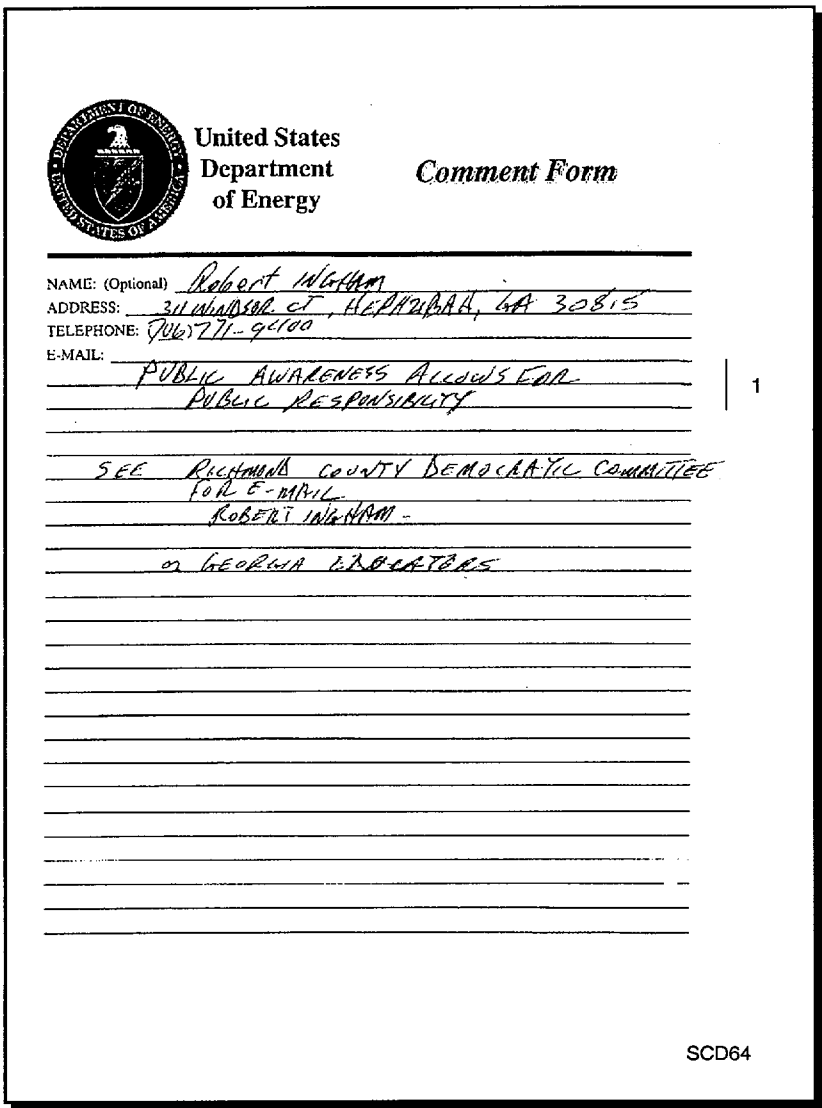 DEPARTMENT OF ENERGY
UNITED STATES OF AMERICA
United States
Department
of Energy
Comment Form
NAME: (Optional) Robert INGHAM
ADDRESS: 311 WINDSOR CT, HEPHZIBAH, GA 30815
TELEPHONE: (706) 771-9400
E-MAIL:
PUBLIC AWARENESS ALLOWS FOR
PUBLIC RESPONSIBILITY
1
SEE RICHMOND COUNTY DEMOCRATIC COMMITTEE
FOR E-MAIL
ROBERT INGHAM -
or GEORGIA EDUCATORS
SCD64